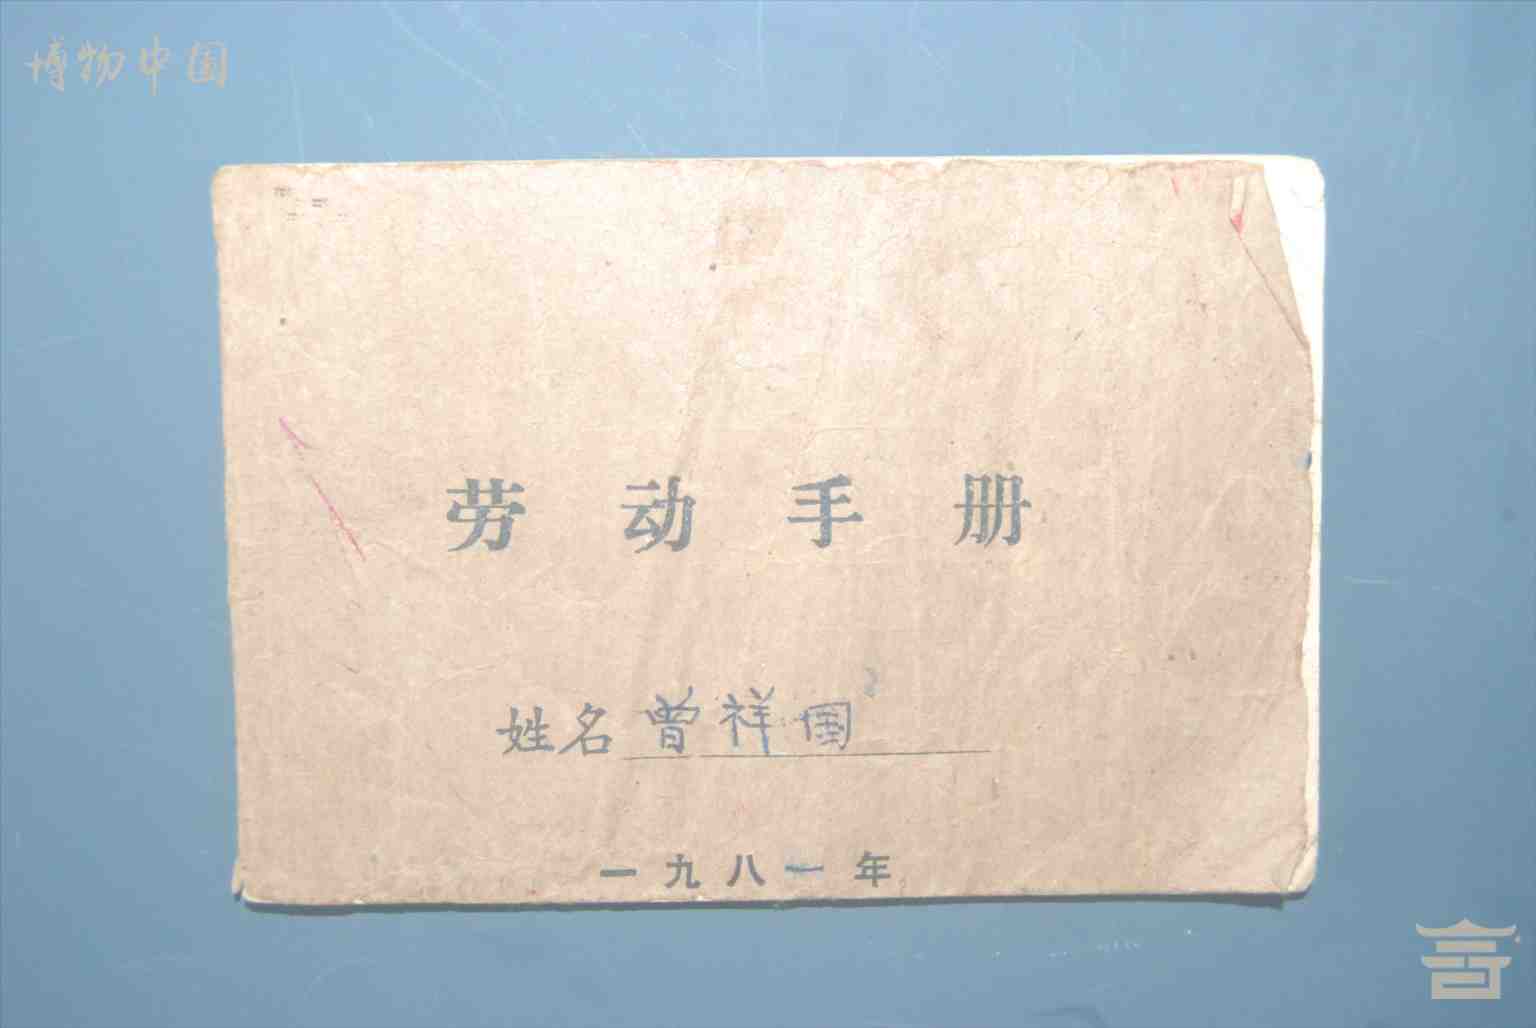 博物中国
劳动手册
姓名 曾祥国
一九八一年